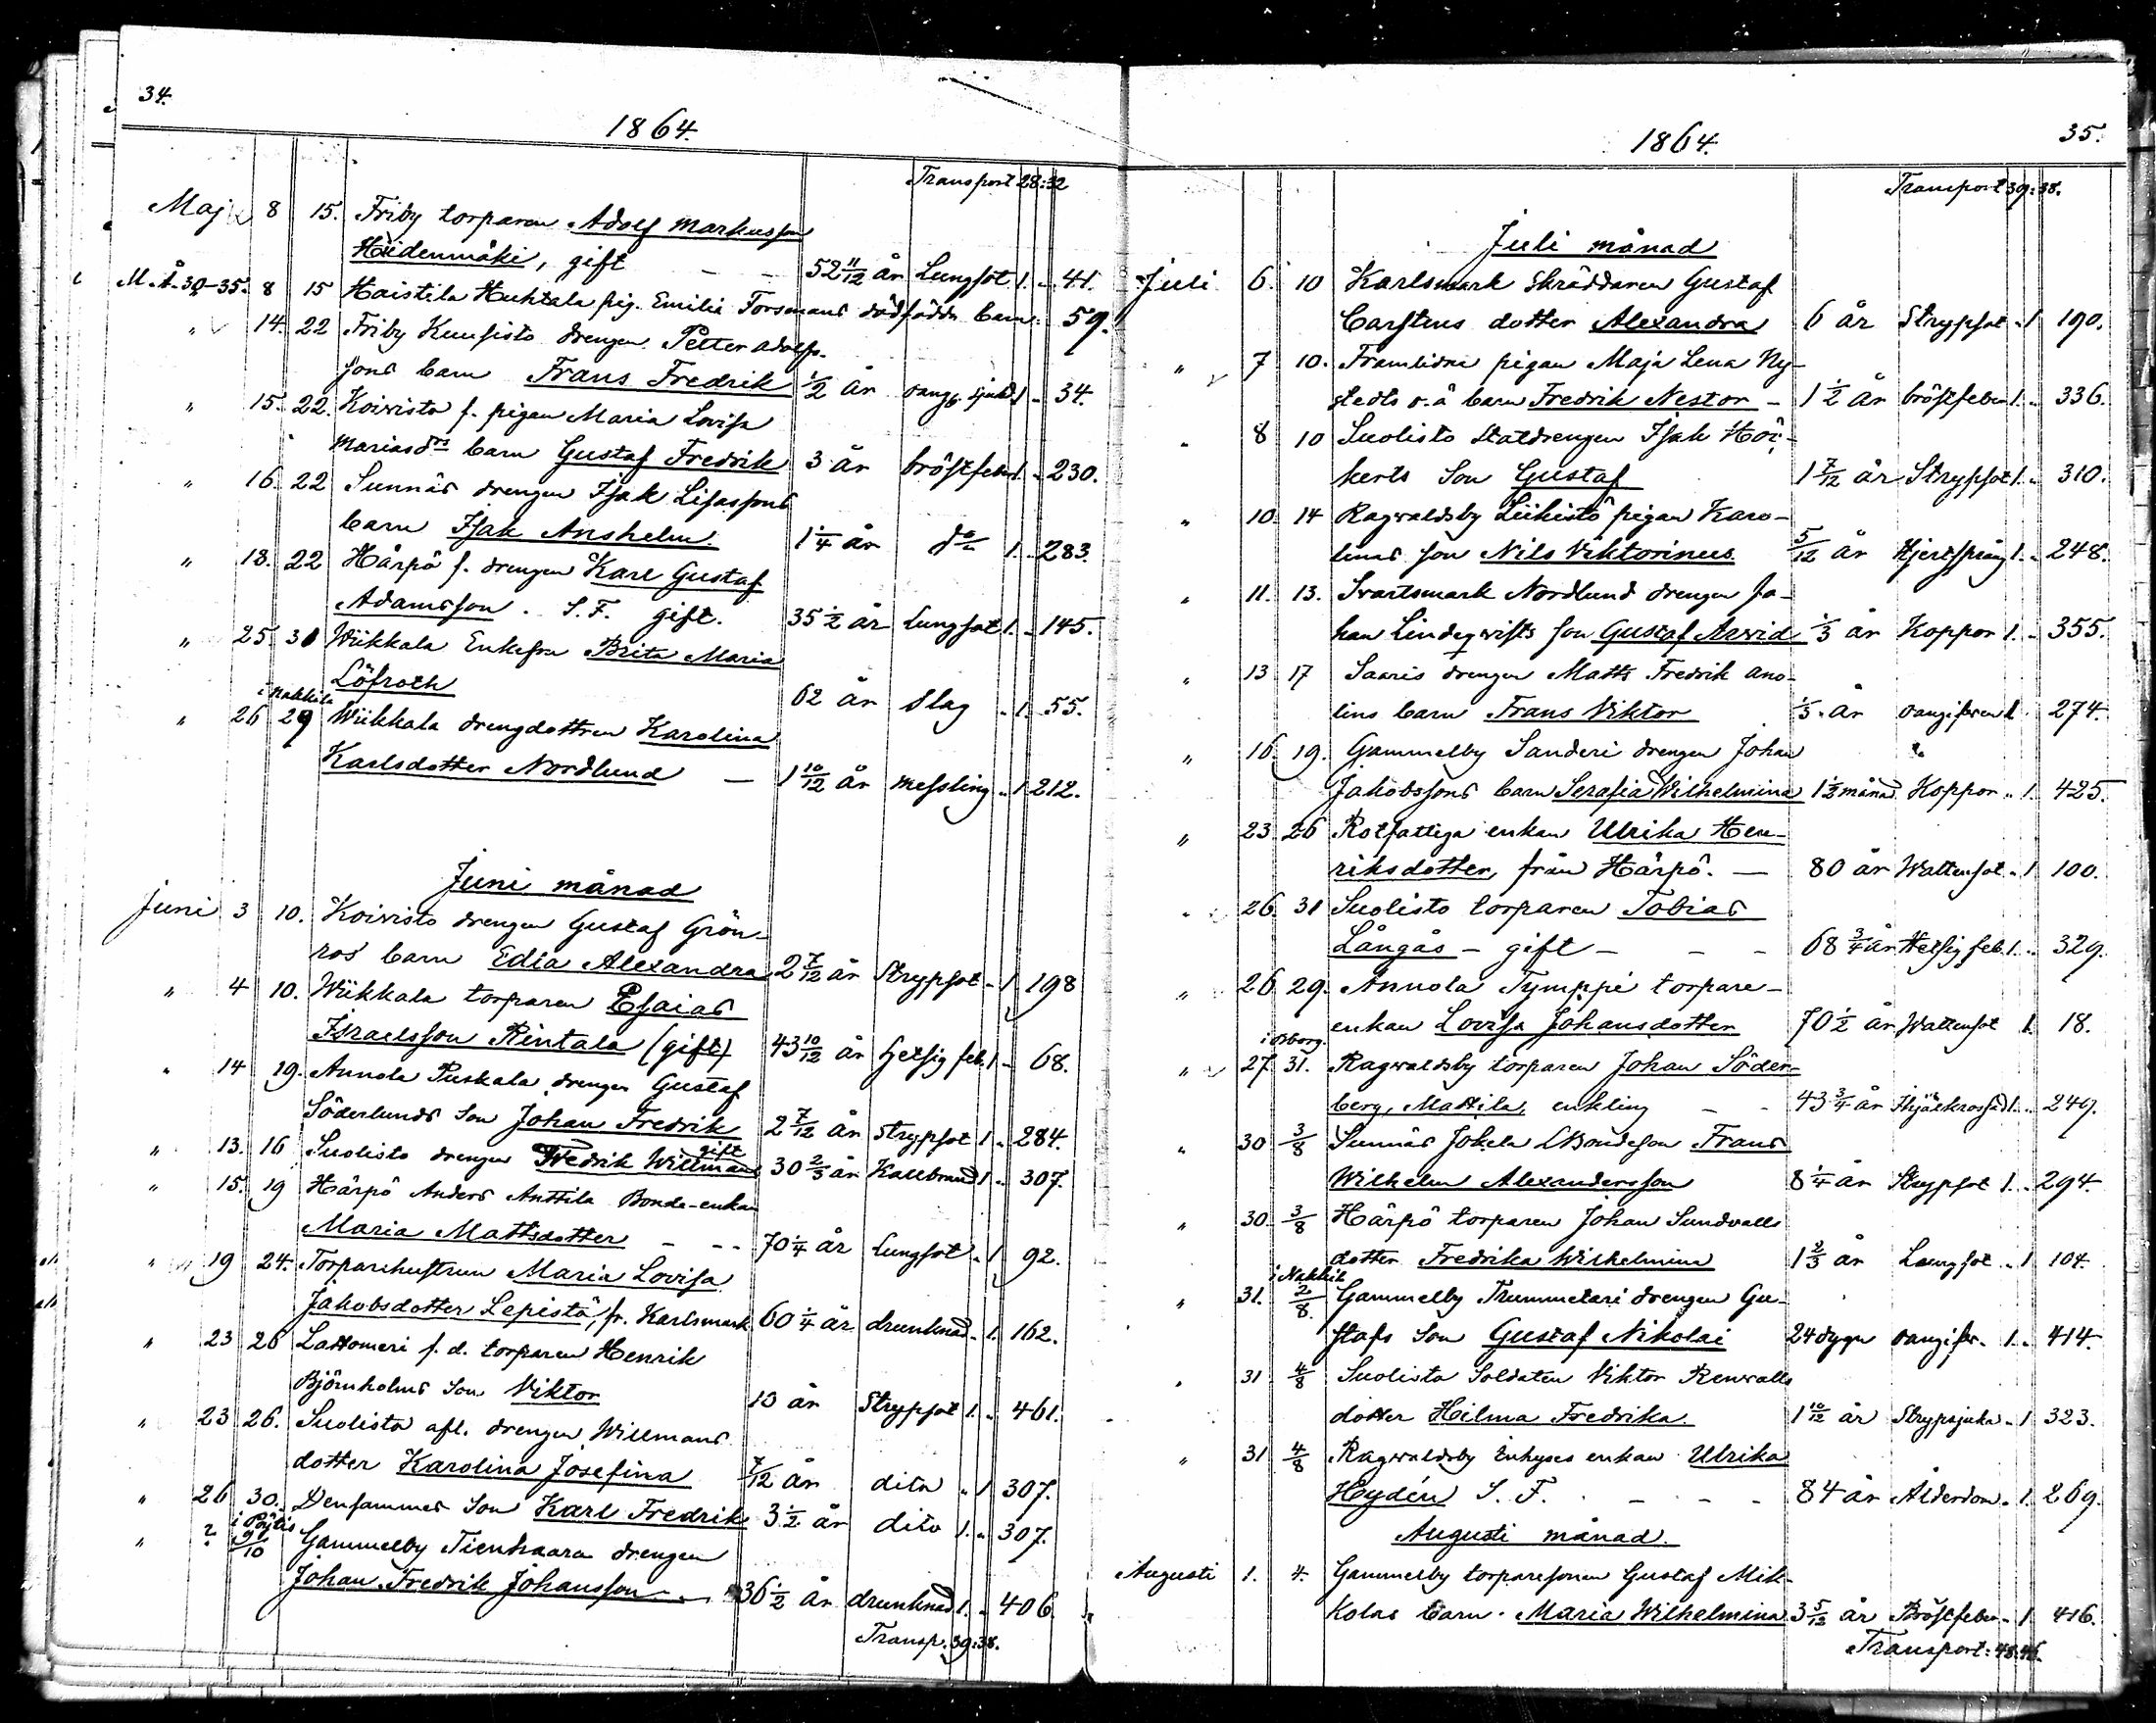 34.
1864.
Transport 28:32
Maj 8 15. Friby torparen Adolf Markusson
Hiidenmäki, gift - - 52 11/12 år Lungsot 1. „ 41.
M.Å. 30-35. 8 15 Haistila Huhtala pig. Emilia Forsmans dödfödda barn. 59.
„ 14. 22 Friby Kuusisto drengen Petter Adolfs-
sons barn Frans Fredrik 1/2 år oangif. sjukd 1 „ 34.
„ 15. 22. Koivisto f. pigan Maria Lovisa
Mariasdrs barn Gustaf Fredrik 3 år bröstfeber 1. „ 230.
„ 16. 22 Sunnäs drengen Isak Lisassons
barn Isak Anshelm. 1 1/4 år do 1. „ 283.
„ 18. 22 Härpö f. drengen Karl Gustaf
Adamsson. S.F. gift. 35 1/2 år Lungsot 1. „ 145.
„ 25. 30 Wiikkala Enkefru Brita Maria
Löfroth 62 år Slag „ 1. 55.
i Nakkila
„ 26 29 Wiikkala drengdottren Karolina
Karlsdotter Nordlund - 1 10/12 år messling „ 1 212.
Juni månad
Juni 3 10. Koivisto drengen Gustaf Grön-
ros barn Edla Alexandra 2 7/12 år Strypsot „ 1 198
„ 4 10. Wiikkala torparen Esaias
Israelsson Rintala (gift) 43 10/12 år hetsig feb. 1 „ 68.
„ 14 19. Annola Puskala drengen Gustaf
Söderlunds Son Johan Fredrik 2 7/12 år strypsot 1 „ 284.
gift
„ 13. 16 Suolisto drengen Fredrik Willman 30 2/3 år Kallbrand 1 „ 307.
„ 15. 19 Härpö Anders Anttila Bonde-enkan
Maria Mattsdotter - - - 70 1/4 år Lungsot „ 1 92.
„ 19 24. Torparehustrun Maria Lovisa
Jakobsdotter Lepistö, fr. Karlsmark 60 1/4 år drunknad „ 1. 162.
„ 23 26 Lattomeri f. d. torparen Henrik
Björnholms Son Viktor 13 år Strypsot 1. „ 461.
„ 23 26. Suolisto afl. drengen Willmans
dotter Karolina Josefina 7/12 år dito „ 1 307.
„ 26 30. Densammes Son Karl Fredrik 3 1/2 år dito 1. „ 307.
i Pöytis
„ ? 9/10 Gammelby Tienhaara drengen
Johan Fredrik Johansson - 36 1/2 år drunknad 1. „ 406
Transp. 39:38.
35.
1864.
Transport 39:38.
Juli månad
Juli 6. 10 Karlsmark Skräddaren Gustaf
Carstens dotter Alexandra 6 år Strypsot „ 1 190.
„ 7 10. Framlidna pigan Maja Lena Ny-
stedts o.ä barn Fredrik Nestor - 1 1/2 år bröstfeber 1. „ 336.
„ 8 10 Suolisto Statdrengen Isak Höc-
kerts Son Gustaf 1 7/12 år Strypsot 1. „ 310.
„ 10. 14 Ragvaldsby Liikistö pigan Karo-
linas son Nils Viktorinus 5/12 år Hjertsprång 1. „ 248.
„ 11. 13. Svartsmark Nordlund drengen Jo-
han Lindeqvists son Gustaf Arvid 1/3 år Koppor 1. „ 355.
„ 13 17 Saaris drengen Matts Fredrik Ano-
lins barn Frans Viktor 1/3 år oangifven 1 274.
„ 16. 19. Gammelby Sanderi drengen Johan
Jakobssons barn Serafia Wilhelmina 1 1/2 månad Koppor „ 1. 425.
„ 23 26 Rotfattiga enkan Ulrika Hen-
riksdotter, från Härpö. - 80 år Wattensot „ 1 100.
„ 26 31 Suolisto torparen Tobias
Långås - gift - - - 68 3/4 år Hetsig feb. 1. „ 329.
„ 26 29. Annola Tymppi torpare-
enkan Lovisa Johansdotter 70 1/2 år Wattensot 1. 18.
i Björneborg
„ 27 31. Ragvaldsby torparen Johan Söder-
berg, Mattila, enkling - - 43 3/4 år ihjälkrossad 1. „ 249.
„ 30 3/8 Sunnäs Jokela Bondeson Frans
Wilhelm Alexandersson 8 1/4 år Strypsot 1. „ 294.
„ 30. 3/8 Härpö torparen Johan Sundvalls
dotter Fredrika Wilhelmina 1 2/3 år Lungsot „ 1 104.
i Nakkila
„ 31. 2/8. Gammelby Trummetari drengen Gu-
stafs Son Gustaf Nikolai 24 dygn oangifv. 1. „ 414.
„ 31 4/8 Suolisto Soldaten Viktor Renvalls
dotter Hilma Fredrika. 1 10/12 år Strypsjuka „ 1 323.
„ 31 4/8 Ragvaldsby Inhyses enkan Ulrika
Hydén S. F. - - - 84 år Ålderdom „ 1. 269.
Augusti månad.
Augusti 1. 4. Gammelby torparesonen Gustaf Mik-
kolas barn. Maria Wilhelmina 3 5/12 år Bröstfeber „ 1. 416.
Transport: 48:46.